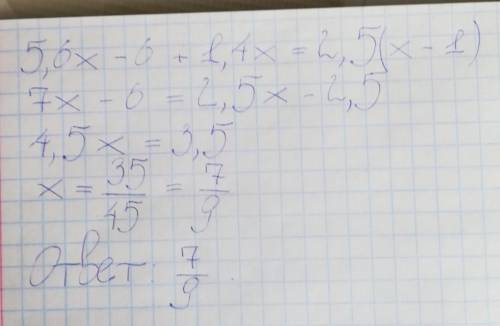 5,6x - 6 + 1,4x = 2,5(x - 1)
7x - 6 = 2,5x - 2,5
4,5x = 3,5
x = 35/45 = 7/9
Ответ: 7/9.